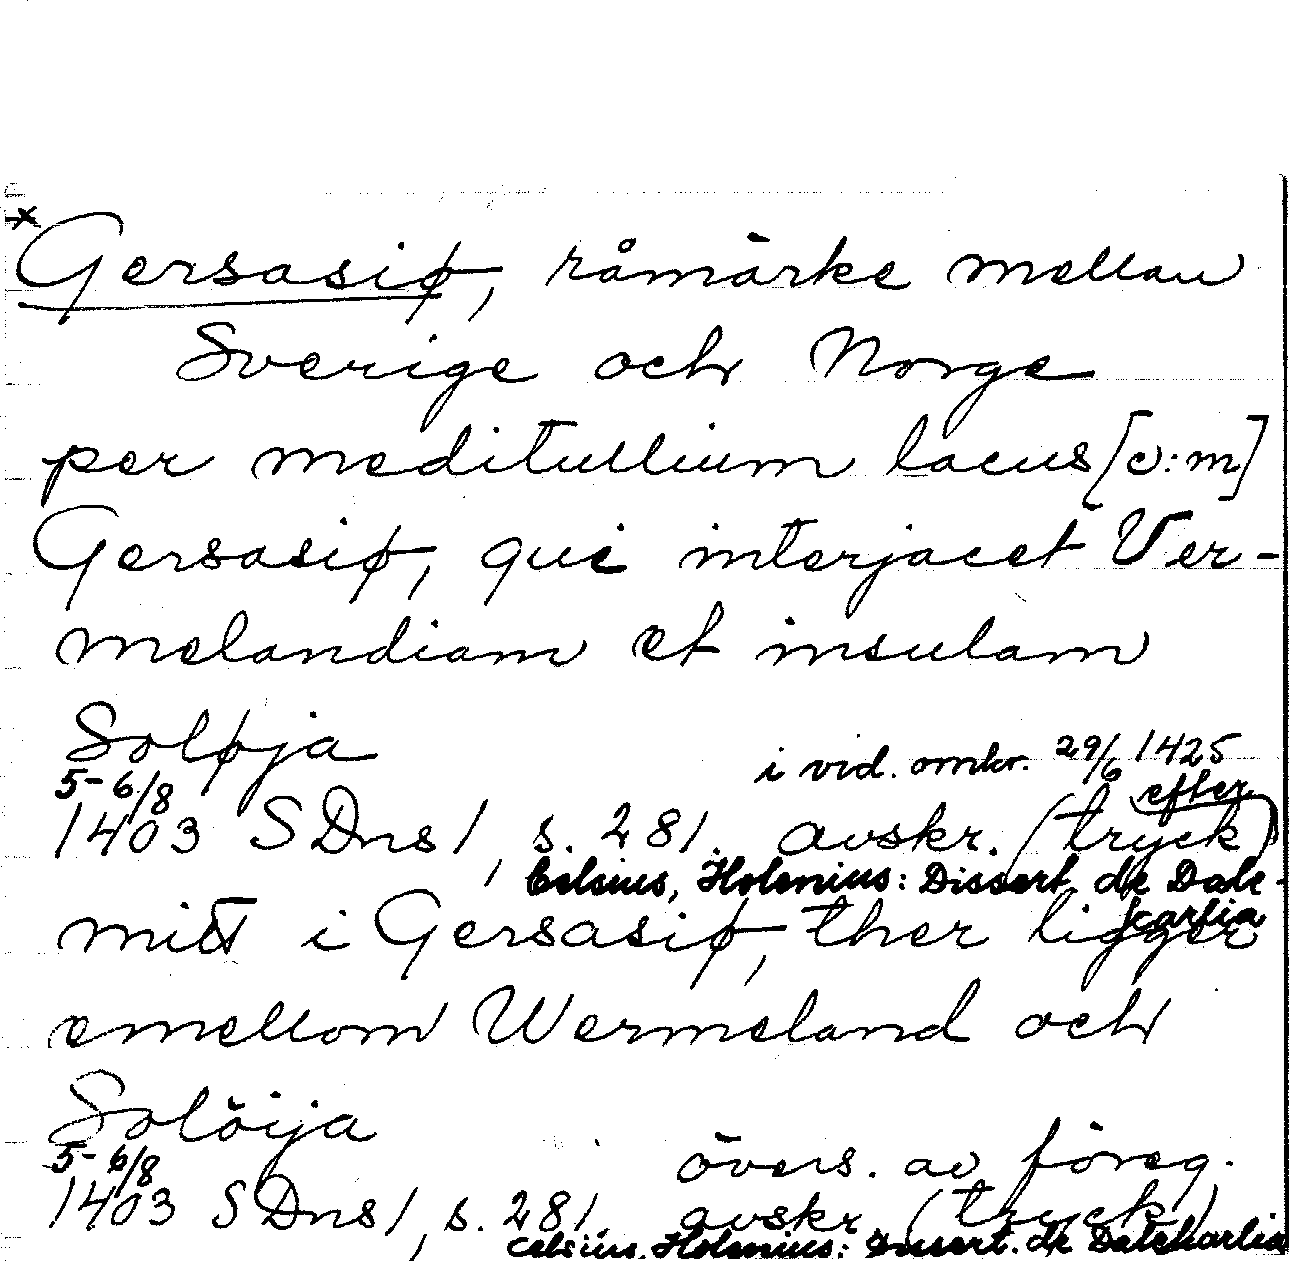 × Gersasiø, råmärke mellan
Sverige och Norge
per meditullium lacus [c:m]
Gersasiø, qui interjacet Ver-
melandiam et insulam
Soløja
i vid. omkr. 29/6 1425
5-6/8 efter
1403 SDns 1, s. 281. avskr. (tryck)
Celsius, Holenius: Dissert. de Dale-
karlia
mitt i Gersasiø, ther ligger
emellom Wermeland och
Solöija
5-6/8 övers. av föreg.
1403 SDns 1, s. 281. avskr. (tryck)
Celsius, Holenius: Dissert. de Dalekarlia